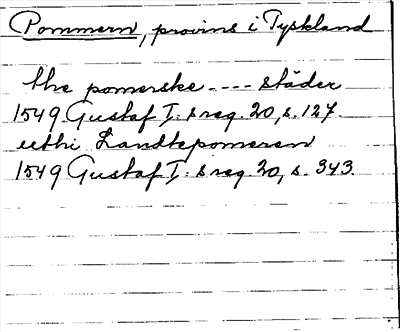 Pommern, provins i Tyskland
the pomerske - - - - städer
1549 Gustaf I:s reg. 20, s. 127.
uthi Landtepomeren
1549 Gustaf I:s reg. 20, s. 343.